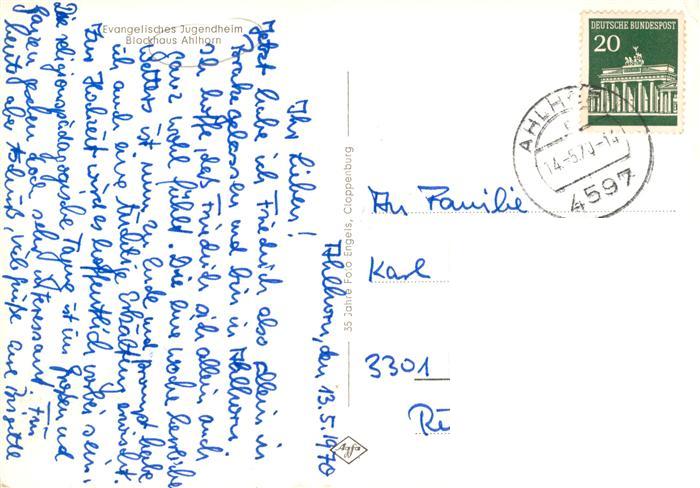 Evangelisches Jugendheim
Blockhaus Ahlhorn
Ahlhorn, den 13.5.1970
Ihr Lieben!
Jetzt habe ich Friedrich also allein in
Brake gelassen und bin in Ahlhorn
Ich hoffe, daß Friedrich sich allein auch
ganz wohl fühlt. Die eine Woche herrliche
Wetters ist nun zu Ende und prompt habe
ich auch eine tüchtige Erkältung erwischt.
Zur Hochzeit wird es hoffentlich vorbei sein.
Die religionspädagogische Tagung ist im Großen und
Ganzen gesehen doch sehr interessant. Für
heute aber Schluß, viele Grüße Eure Brigitte
35 Jahre Foto Engels, Cloppenburg
Agfa
DEUTSCHE BUNDESPOST
20
AHLHORN
14.-5.70-14
4597
An Familie
Karl
3301